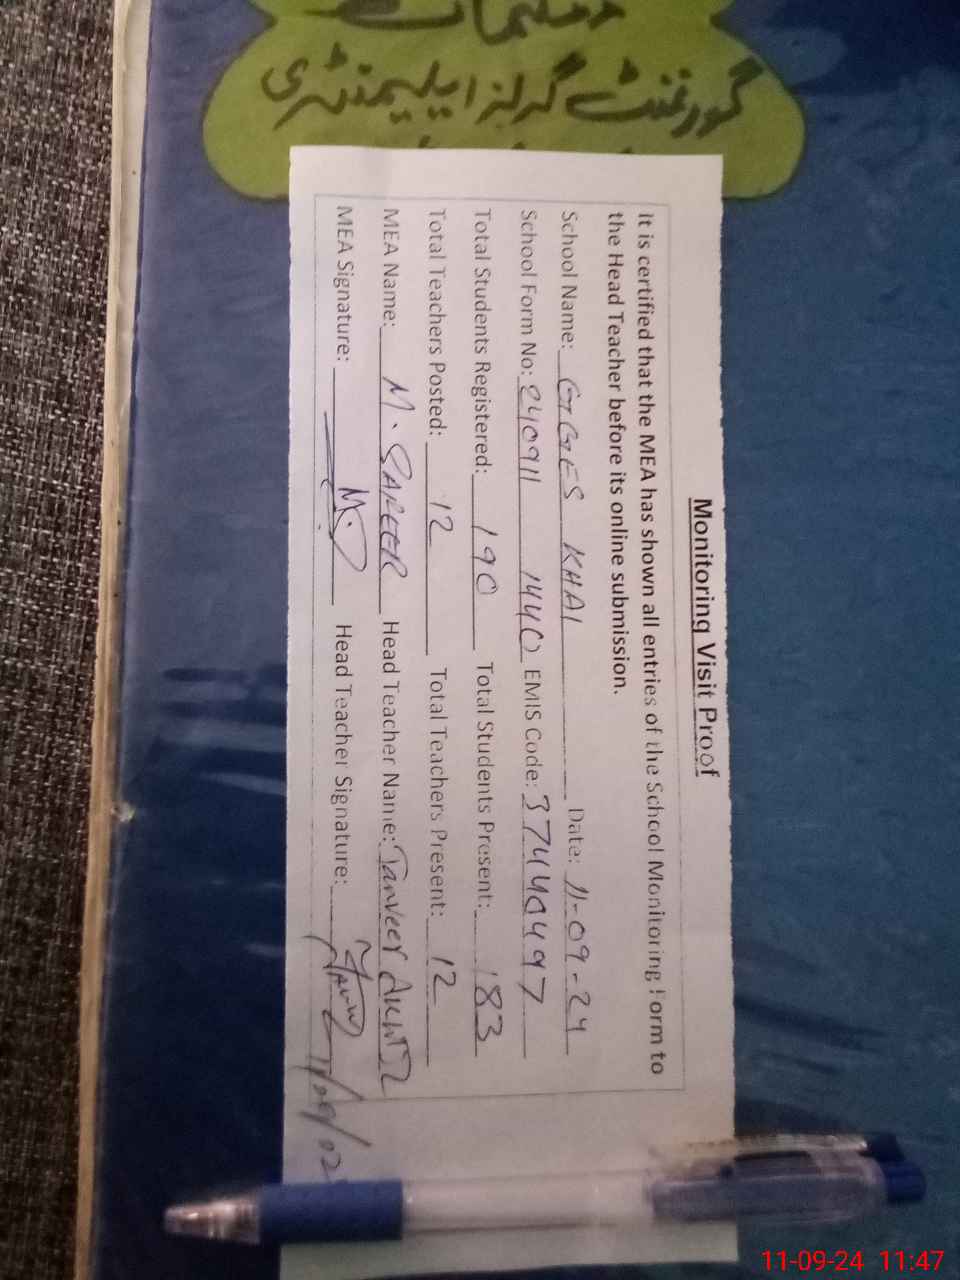 گورنمنٹ گرلز ایلیمنٹری
Monitoring Visit Proof
It is certified that the MEA has shown all entries of the School Monitoring Form to
the Head Teacher before its online submission.
School Name: GGES KHAI Date: 11-09-24
School Form No: 240911 1440 EMIS Code: 37440497
Total Students Registered: 190 Total Students Present: 183
Total Teachers Posted: 12 Total Teachers Present: 12
MEA Name: M. Head Teacher Name: Tanveer Akhtar
MEA Signature: Head Teacher Signature:
11/09/02
11-09-24 11:47